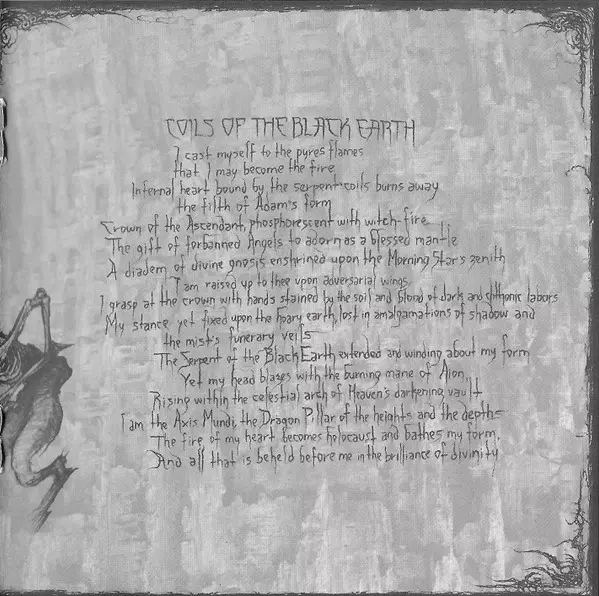 COILS OF THE BLACK EARTH
I cast myself to the pyres flames
that I may become the fire
Infernal heart bound by the serpent-coils burns away
the filth of Adam's form
Crown of the Ascendant, phosphorescent with witch-fire
The gift of forbanned Angels to adorn as a blessed mantle
A diadem of divine gnosis enshrined upon the Morning Star's zenith
I am raised up to thee upon adversarial wings
I grasp at the crown with hands stained by the soil and blood of dark and chthonic labors
My stance yet fixed upon the hoary earth, lost in amalgamations of shadow and
the mist's funerary veils
The Serpent of the Black Earth extended and winding about my form
Yet my head blazes with the burning mane of Aion,
Rising within the celestial arch of Heaven's darkening vault
I am the Axis Mundi, the Dragon Pillar of the heights and the depths
The fire of my heart becomes holocaust and bathes my form,
And all that is beheld before me in the brilliance of divinity